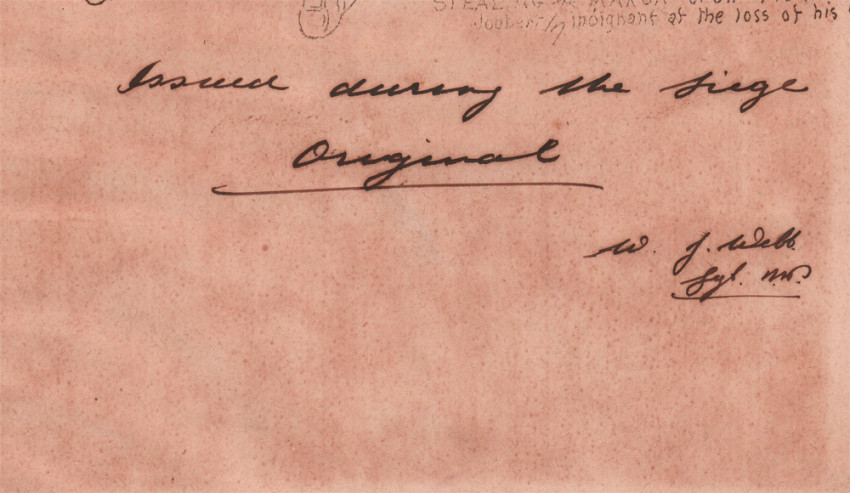 STEALING A MARCH upon
Joubert indignant at the loss of his
Issued during the siege
Original
W. J. Webb.
Sgt.